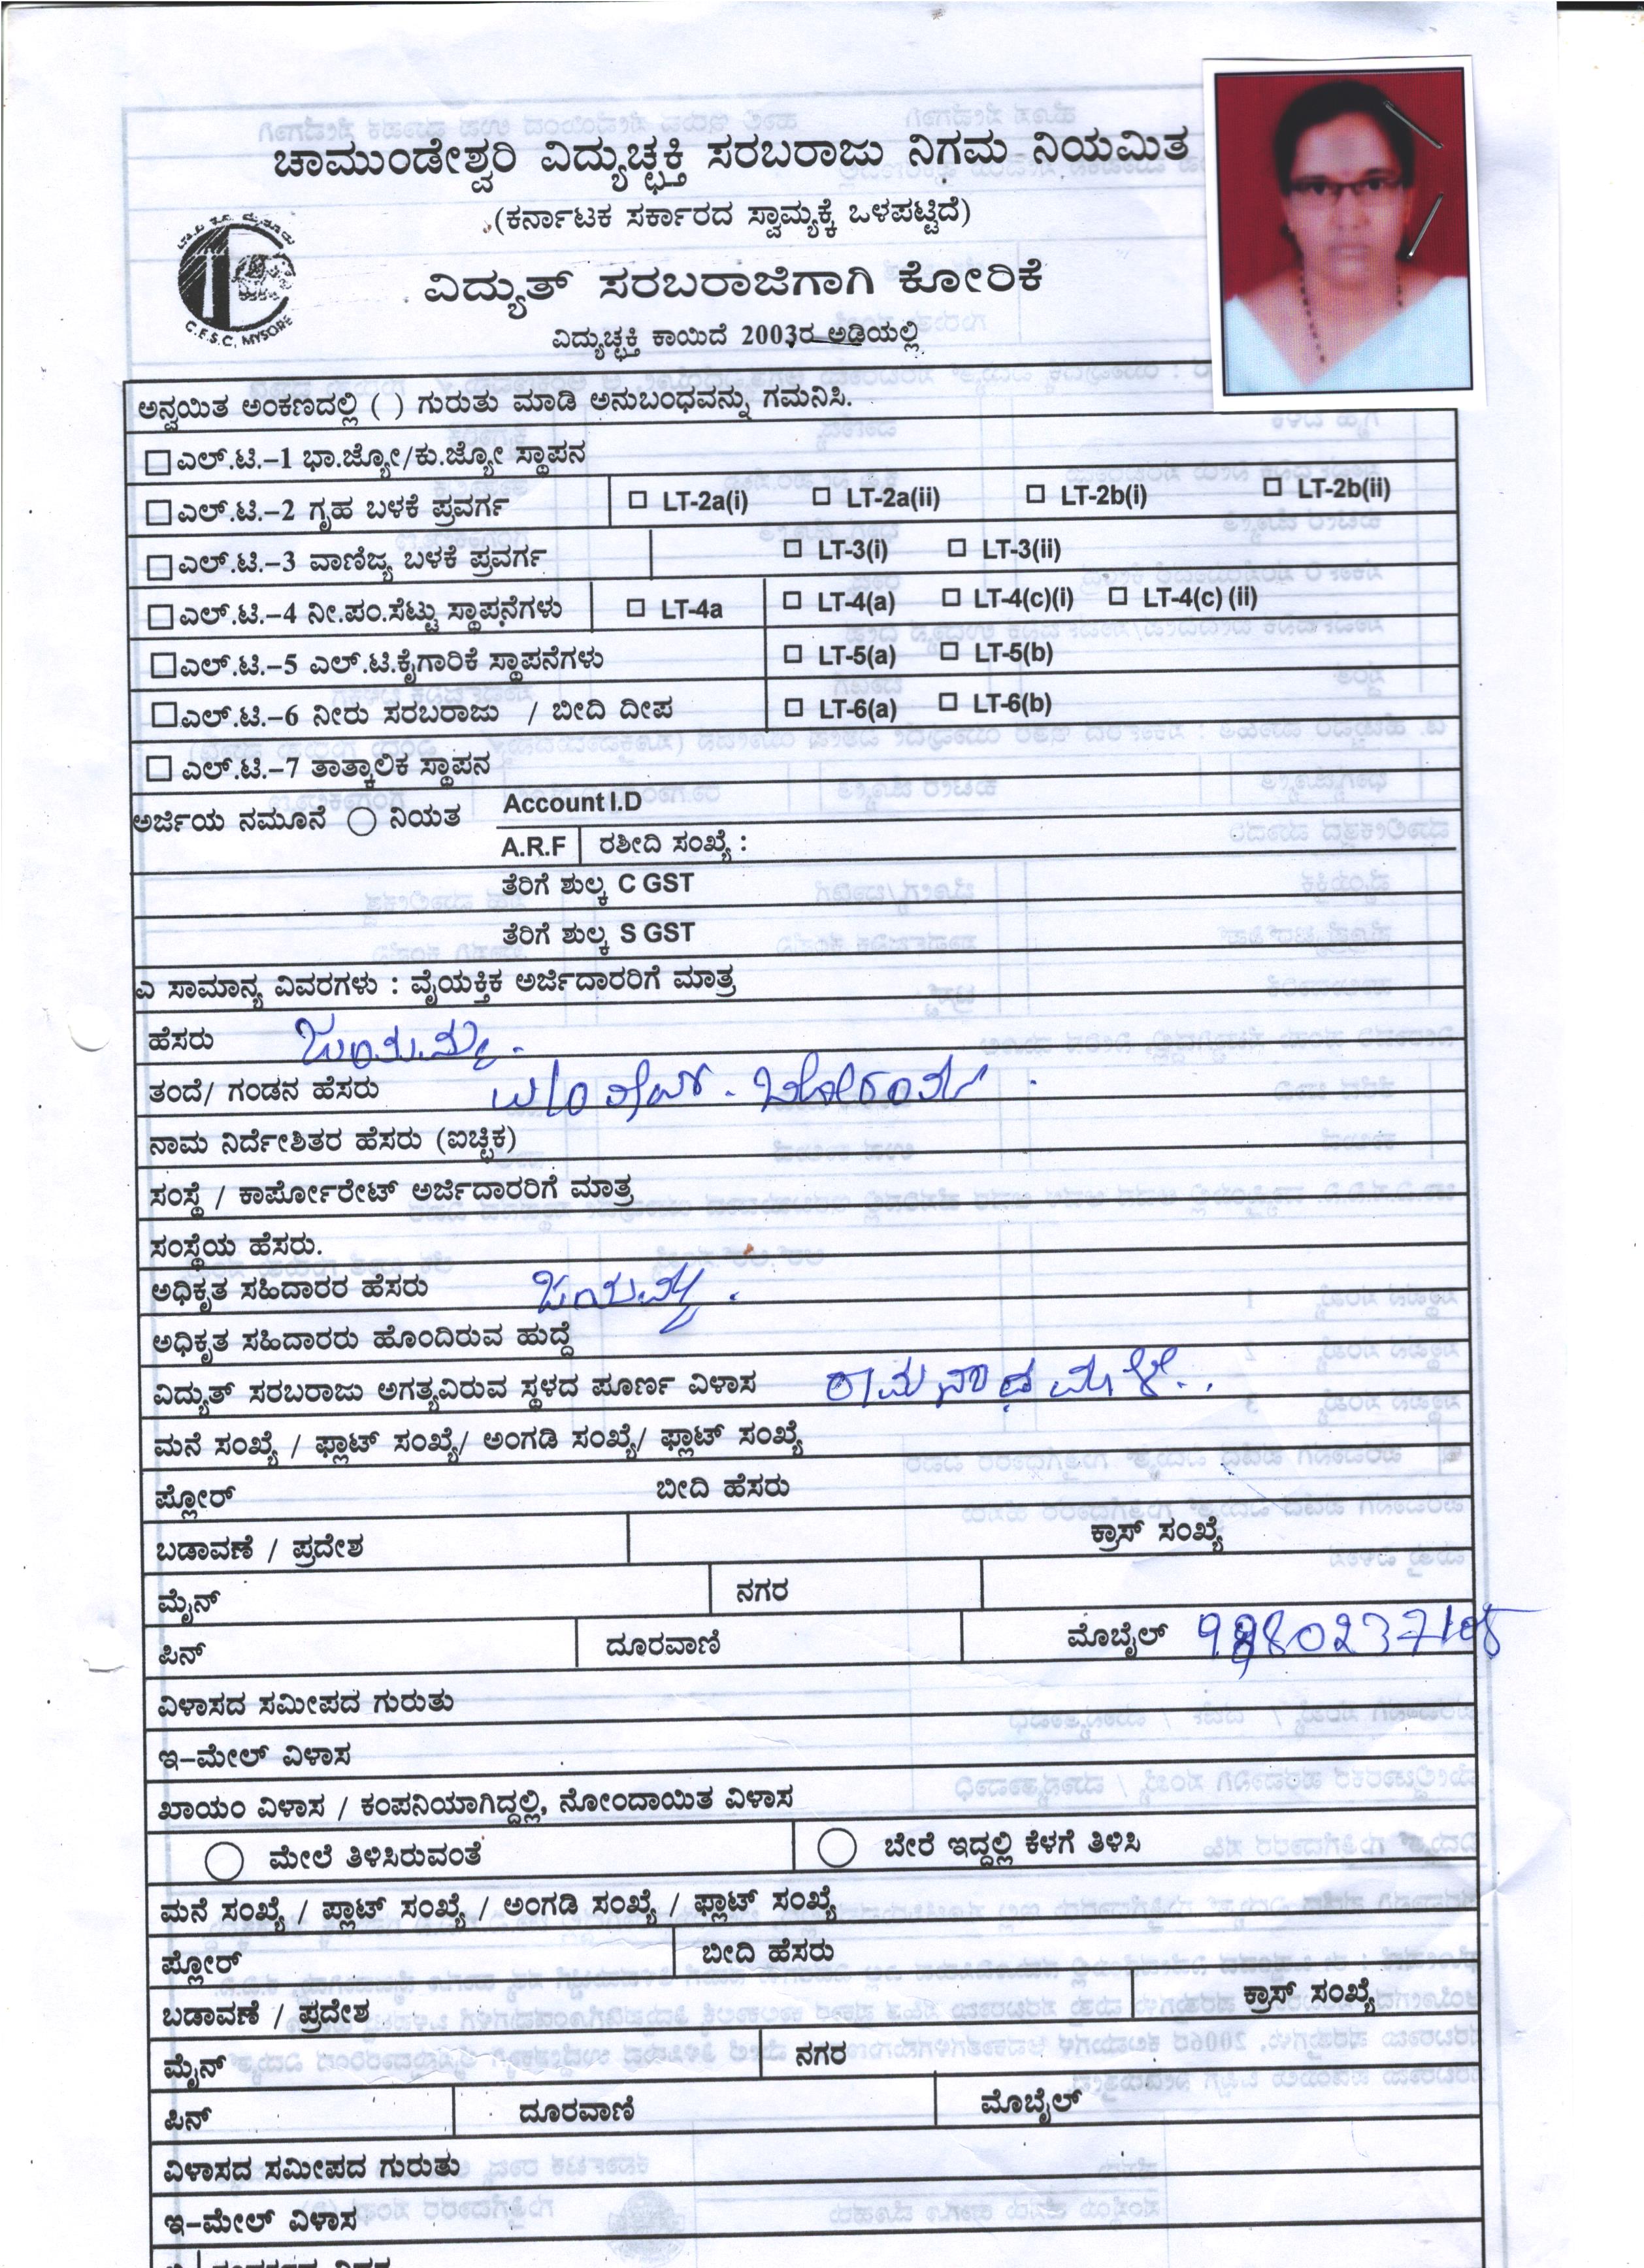 ಚಾಮುಂಡೇಶ್ವರಿ ವಿದ್ಯುಚ್ಛಕ್ತಿ ಸರಬರಾಜು ನಿಗಮ ನಿಯಮಿತ
(ಕರ್ನಾಟಕ ಸರ್ಕಾರದ ಸ್ವಾಮ್ಯಕ್ಕೆ ಒಳಪಟ್ಟಿದೆ)
C.E.S.C, MYSORE
ವಿದ್ಯುತ್ ಸರಬರಾಜಿಗಾಗಿ ಕೋರಿಕೆ
ವಿದ್ಯುಚ್ಛಕ್ತಿ ಕಾಯಿದೆ 2003ರ ಅಡಿಯಲ್ಲಿ
ಅನ್ವಯಿತ ಅಂಕಣದಲ್ಲಿ ( ) ಗುರುತು ಮಾಡಿ ಅನುಬಂಧವನ್ನು ಗಮನಿಸಿ.
ಎಲ್.ಟಿ.-1 ಭಾ.ಜ್ಯೋ/ಕು.ಜ್ಯೋ ಸ್ಥಾಪನ
ಎಲ್.ಟಿ.-2 ಗೃಹ ಬಳಕೆ ಪ್ರವರ್ಗ LT-2a(i) LT-2a(ii) LT-2b(i) LT-2b(ii)
ಎಲ್.ಟಿ.-3 ವಾಣಿಜ್ಯ ಬಳಕೆ ಪ್ರವರ್ಗ LT-3(i) LT-3(ii)
ಎಲ್.ಟಿ.-4 ನೀ.ಪಂ.ಸೆಟ್ಟು ಸ್ಥಾಪನೆಗಳು LT-4a LT-4(a) LT-4(c)(i) LT-4(c) (ii)
ಎಲ್.ಟಿ.-5 ಎಲ್.ಟಿ.ಕೈಗಾರಿಕೆ ಸ್ಥಾಪನೆಗಳು LT-5(a) LT-5(b)
ಎಲ್.ಟಿ.-6 ನೀರು ಸರಬರಾಜು / ಬೀದಿ ದೀಪ LT-6(a) LT-6(b)
ಎಲ್.ಟಿ.-7 ತಾತ್ಕಾಲಿಕ ಸ್ಥಾಪನ
Account I.D
ಅರ್ಜಿಯ ನಮೂನೆ ನಿಯತ
A.R.F ರಶೀದಿ ಸಂಖ್ಯೆ :
ತೆರಿಗೆ ಶುಲ್ಕ C GST
ತೆರಿಗೆ ಶುಲ್ಕ S GST
ಎ ಸಾಮಾನ್ಯ ವಿವರಗಳು : ವೈಯಕ್ತಿಕ ಅರ್ಜಿದಾರರಿಗೆ ಮಾತ್ರ
ಹೆಸರು ಜಯಮ್ಮ.
ತಂದೆ/ ಗಂಡನ ಹೆಸರು
ನಾಮ ನಿರ್ದೇಶಿತರ ಹೆಸರು (ಐಚ್ಛಿಕ)
ಸಂಸ್ಥೆ / ಕಾರ್ಪೋರೇಟ್ ಅರ್ಜಿದಾರರಿಗೆ ಮಾತ್ರ
ಸಂಸ್ಥೆಯ ಹೆಸರು.
ಅಧಿಕೃತ ಸಹಿದಾರರ ಹೆಸರು ಜಯಮ್ಮ.
ಅಧಿಕೃತ ಸಹಿದಾರರು ಹೊಂದಿರುವ ಹುದ್ದೆ
ವಿದ್ಯುತ್ ಸರಬರಾಜು ಅಗತ್ಯವಿರುವ ಸ್ಥಳದ ಪೂರ್ಣ ವಿಳಾಸ
ಮನೆ ಸಂಖ್ಯೆ / ಫ್ಲಾಟ್ ಸಂಖ್ಯೆ/ ಅಂಗಡಿ ಸಂಖ್ಯೆ/ ಫ್ಲಾಟ್ ಸಂಖ್ಯೆ
ಪ್ಲೋರ್ ಬೀದಿ ಹೆಸರು
ಬಡಾವಣೆ / ಪ್ರದೇಶ ಕ್ರಾಸ್ ಸಂಖ್ಯೆ
ಮೈನ್ ನಗರ
ಪಿನ್ ದೂರವಾಣಿ ಮೊಬೈಲ್
ವಿಳಾಸದ ಸಮೀಪದ ಗುರುತು
ಇ-ಮೇಲ್ ವಿಳಾಸ
ಖಾಯಂ ವಿಳಾಸ / ಕಂಪನಿಯಾಗಿದ್ದಲ್ಲಿ, ನೋಂದಾಯಿತ ವಿಳಾಸ
ಮೇಲೆ ತಿಳಿಸಿರುವಂತೆ ಬೇರೆ ಇದ್ದಲ್ಲಿ ಕೆಳಗೆ ತಿಳಿಸಿ
ಮನೆ ಸಂಖ್ಯೆ / ಪ್ಲಾಟ್ ಸಂಖ್ಯೆ / ಅಂಗಡಿ ಸಂಖ್ಯೆ / ಫ್ಲಾಟ್ ಸಂಖ್ಯೆ
ಪ್ಲೋರ್ ಬೀದಿ ಹೆಸರು
ಬಡಾವಣೆ / ಪ್ರದೇಶ ಕ್ರಾಸ್ ಸಂಖ್ಯೆ
ಮೈನ್ ನಗರ
ಪಿನ್ ದೂರವಾಣಿ ಮೊಬೈಲ್
ವಿಳಾಸದ ಸಮೀಪದ ಗುರುತು
ಇ-ಮೇಲ್ ವಿಳಾಸ